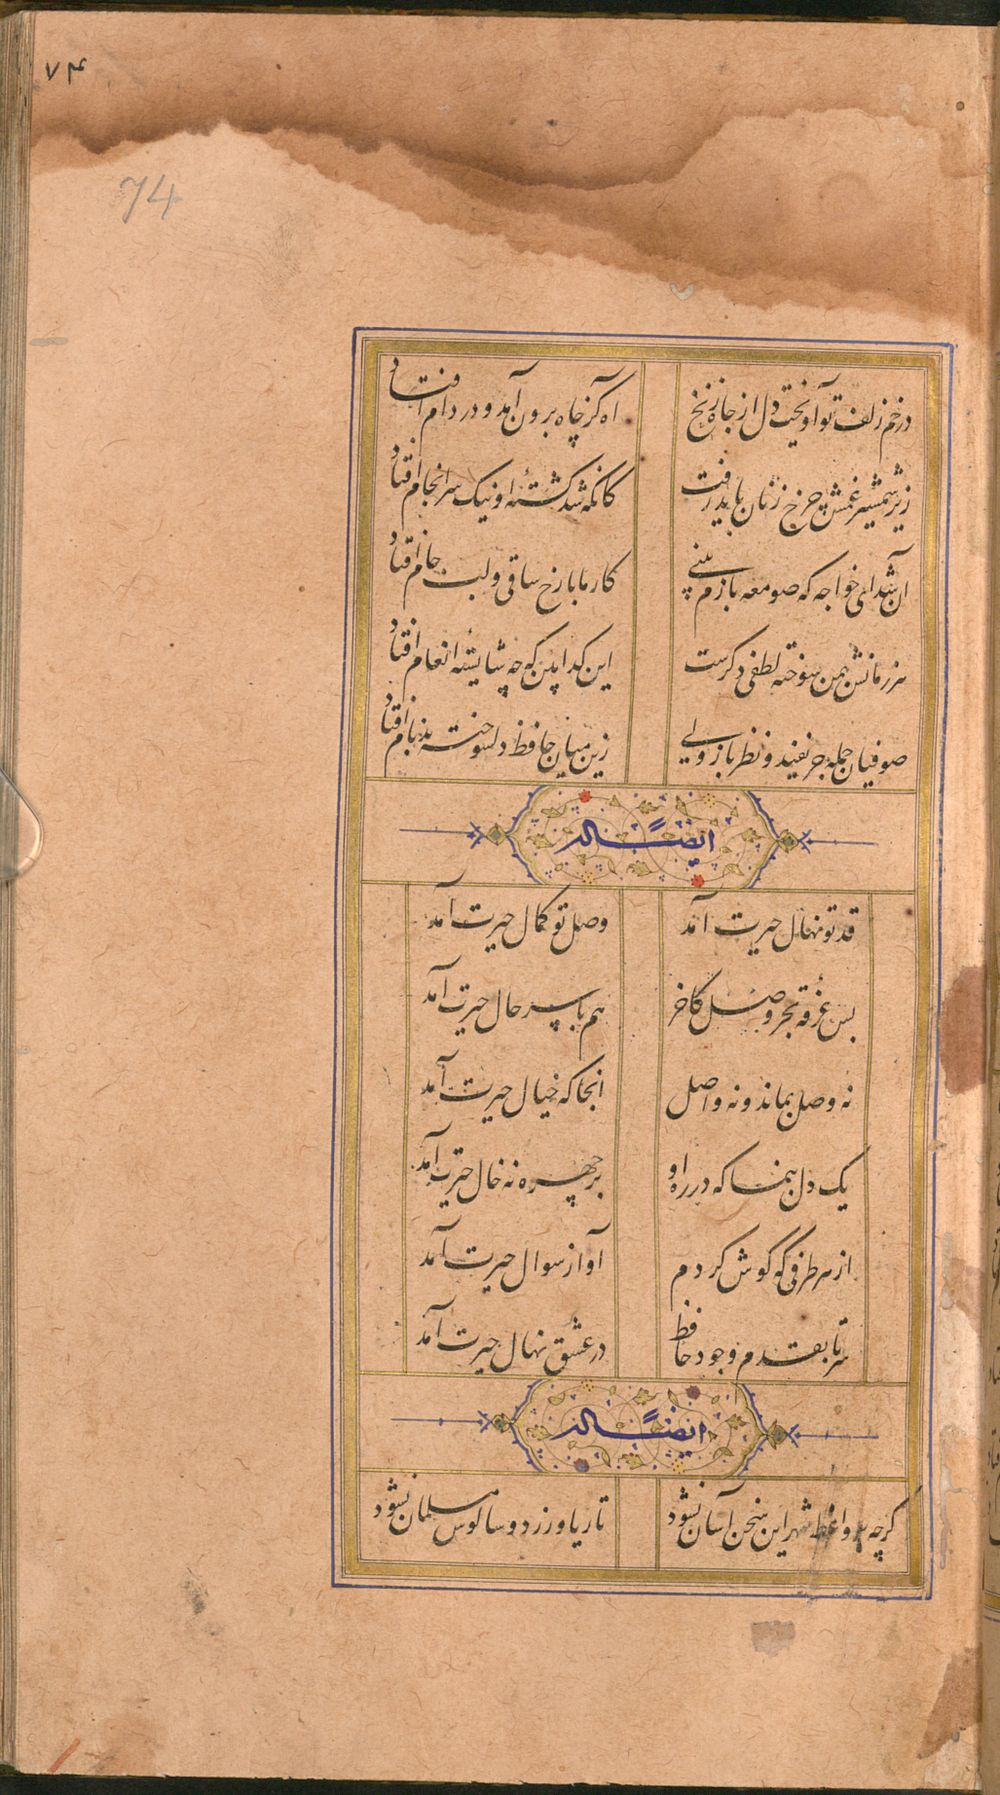 ٧٤
74
در خم زلف تو آویخت دل از چاه زنخ    آه کز چاه برون آمد و در دام افتاد
زیر شمشیر غمش چرخ زنان باید رفت    کانکه شد کشتهٔ او نیک سرانجام افتاد
آن شد ای خواجه که در صومعه بازم بینی    کار ما با رخ ساقی و لب جام افتاد
هر زمانش بمن سوخته لطفی دگرست    این گدا بین که چه شایستهٔ انعام افتاد
صوفیان جمله حریفند و نظرباز ولی    زین میان حافظ دلسوخته بدنام افتاد
ایضاً له
قد تو نهال حیرت آمد    وصل تو کمال حیرت آمد
بس غرقهٔ بحر وصل کآخر    هم با سر حال حیرت آمد
نه وصل بماند و نه واصل    آنجا که خیال حیرت آمد
یک دل بنما که در ره او    بر چهره نه خال حیرت آمد
از هر طرفی که گوش کردم    آواز سوال حیرت آمد
سر تا بقدم وجود حافظ    در عشق نهال حیرت آمد
ایضاً له
گرچه بر واعظ شهر این سخن آسان نشود    تا ریا ورزد و سالوس مسلمان نشود